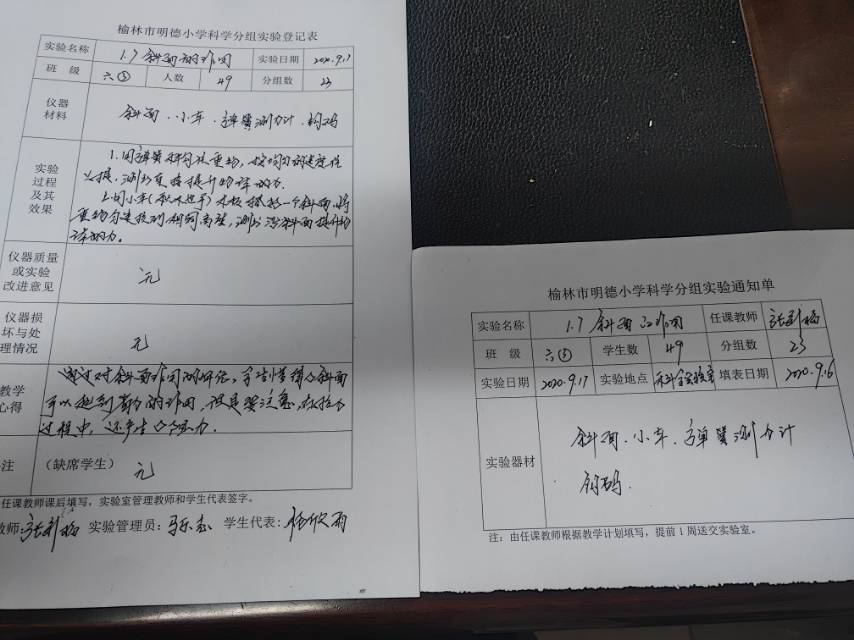 榆林市明德小学科学分组实验登记表
实验名称 1.7 斜面的作用 实验日期 2020.9.17
班 级 六③ 人数 49 分组数 23
仪器
材料
斜面、小车、弹簧测力计、钩码
实验
过程
及其
效果
1.用弹簧秤勾住重物,按均匀的速度往
上提,测出直接提升物体的力.
2.用小车(和木块等)木板搭成一个斜面,将
重物匀速拉到相同高度,测出沿斜面提升物
体的力。
仪器质量
或实验
改进意见
无
仪器损
坏与处
理情况
无
教学
心得
通过对斜面作用的研究,学生懂得了斜面
可以起到省力的作用,但是要注意,在拉力
过程中,还产生了压力.
注 (缺席学生) 无
任课教师课后填写,实验室管理教师和学生代表签字。
教师: 实验管理员: 学生代表:
榆林市明德小学科学分组实验通知单
实验名称 1.7 斜面的作用 任课教师
班 级 六③ 学生数 49 分组数 23
实验日期 2020.9.17 实验地点 科学实验室 填表日期 2020.9.16
实验器材
斜面、小车、弹簧测力计
钩码.
注:由任课教师根据教学计划填写,提前1周送交实验室。